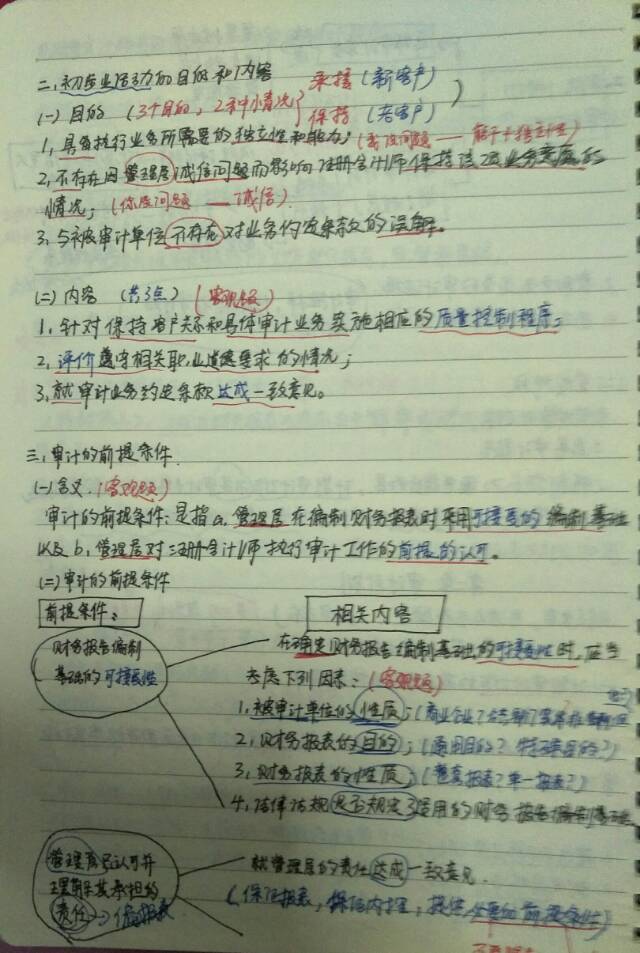 二、初步业务活动的目的和内容
(一) 目的 (3个目的, 2种情况 { 承接 (新客户)
保持 (老客户) )
1, 具备执行业务所需要的独立性和能力; (我没问题 —— 能力+独立性)
2, 不存在因管理层诚信问题而影响注册会计师保持该项业务意愿的
情况; (你没问题 —— 诚信)
3, 与被审计单位不存在对业务约定条款的误解。
(二) 内容 (共3点) (客观题)
1, 针对保持客户关系和具体审计业务实施相应的质量控制程序;
2, 评价遵守相关职业道德要求的情况;
3, 就审计业务约定条款达成一致意见。
三、审计的前提条件
(一) 含义. (客观题)
审计的前提条件: 是指 a, 管理层在编制财务报表时采用可接受的编制基础
以及 b, 管理层对注册会计师执行审计工作的前提的认可。
(二) 审计的前提条件
前提条件: 相关内容
财务报告编制
基础的可接受性
在确定财务报告编制基础的可接受性时, 应当
考虑下列因素: (客观题)
1, 被审计单位的性质; (商业企业?
2, 财务报表的目的; (通用目的? 特殊目的?)
3, 财务报表的性质; (整套报表? 单一报表?)
4, 法律法规是否规定了适用的财务报告编制基础
管理层已认可并
理解其承担的
责任
就管理层的责任达成一致意见
(保证报表, 保证内控, 提供必要的